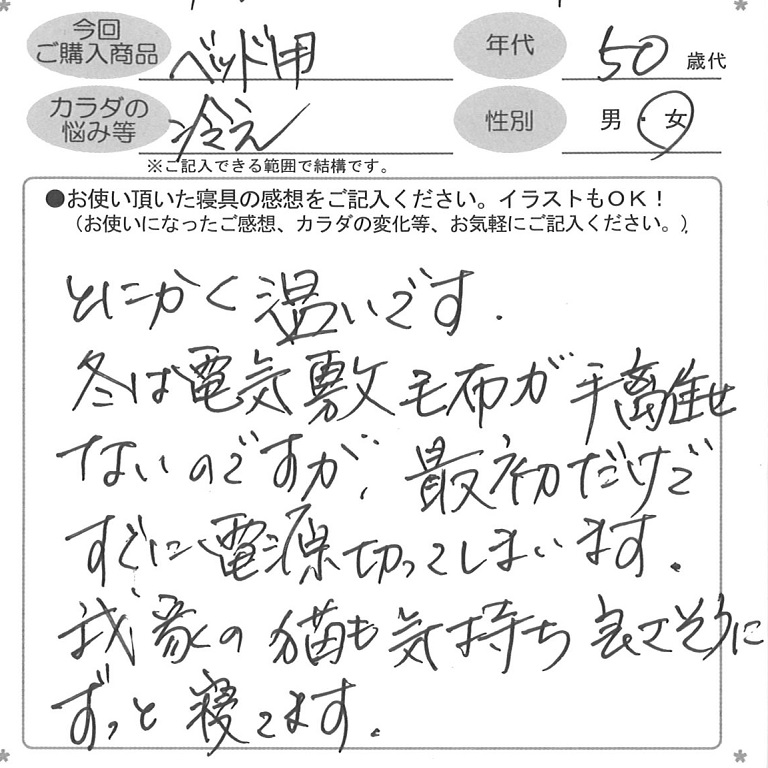 今回
ご購入商品 ベッド用 年代 50 歳代
カラダの
悩み等 冷え 性別 男・女
※ご記入できる範囲で結構です。
●お使い頂いた寝具の感想をご記入ください。イラストもOK！
（お使いになったご感想、カラダの変化等、お気軽にご記入ください。）
とにかく温いです.
冬は電気敷毛布が手離せ
ないのですが、最初だけで
すぐに電源切ってしまいます.
我家の猫も気持ち良さそうに
ずっと寝てます.